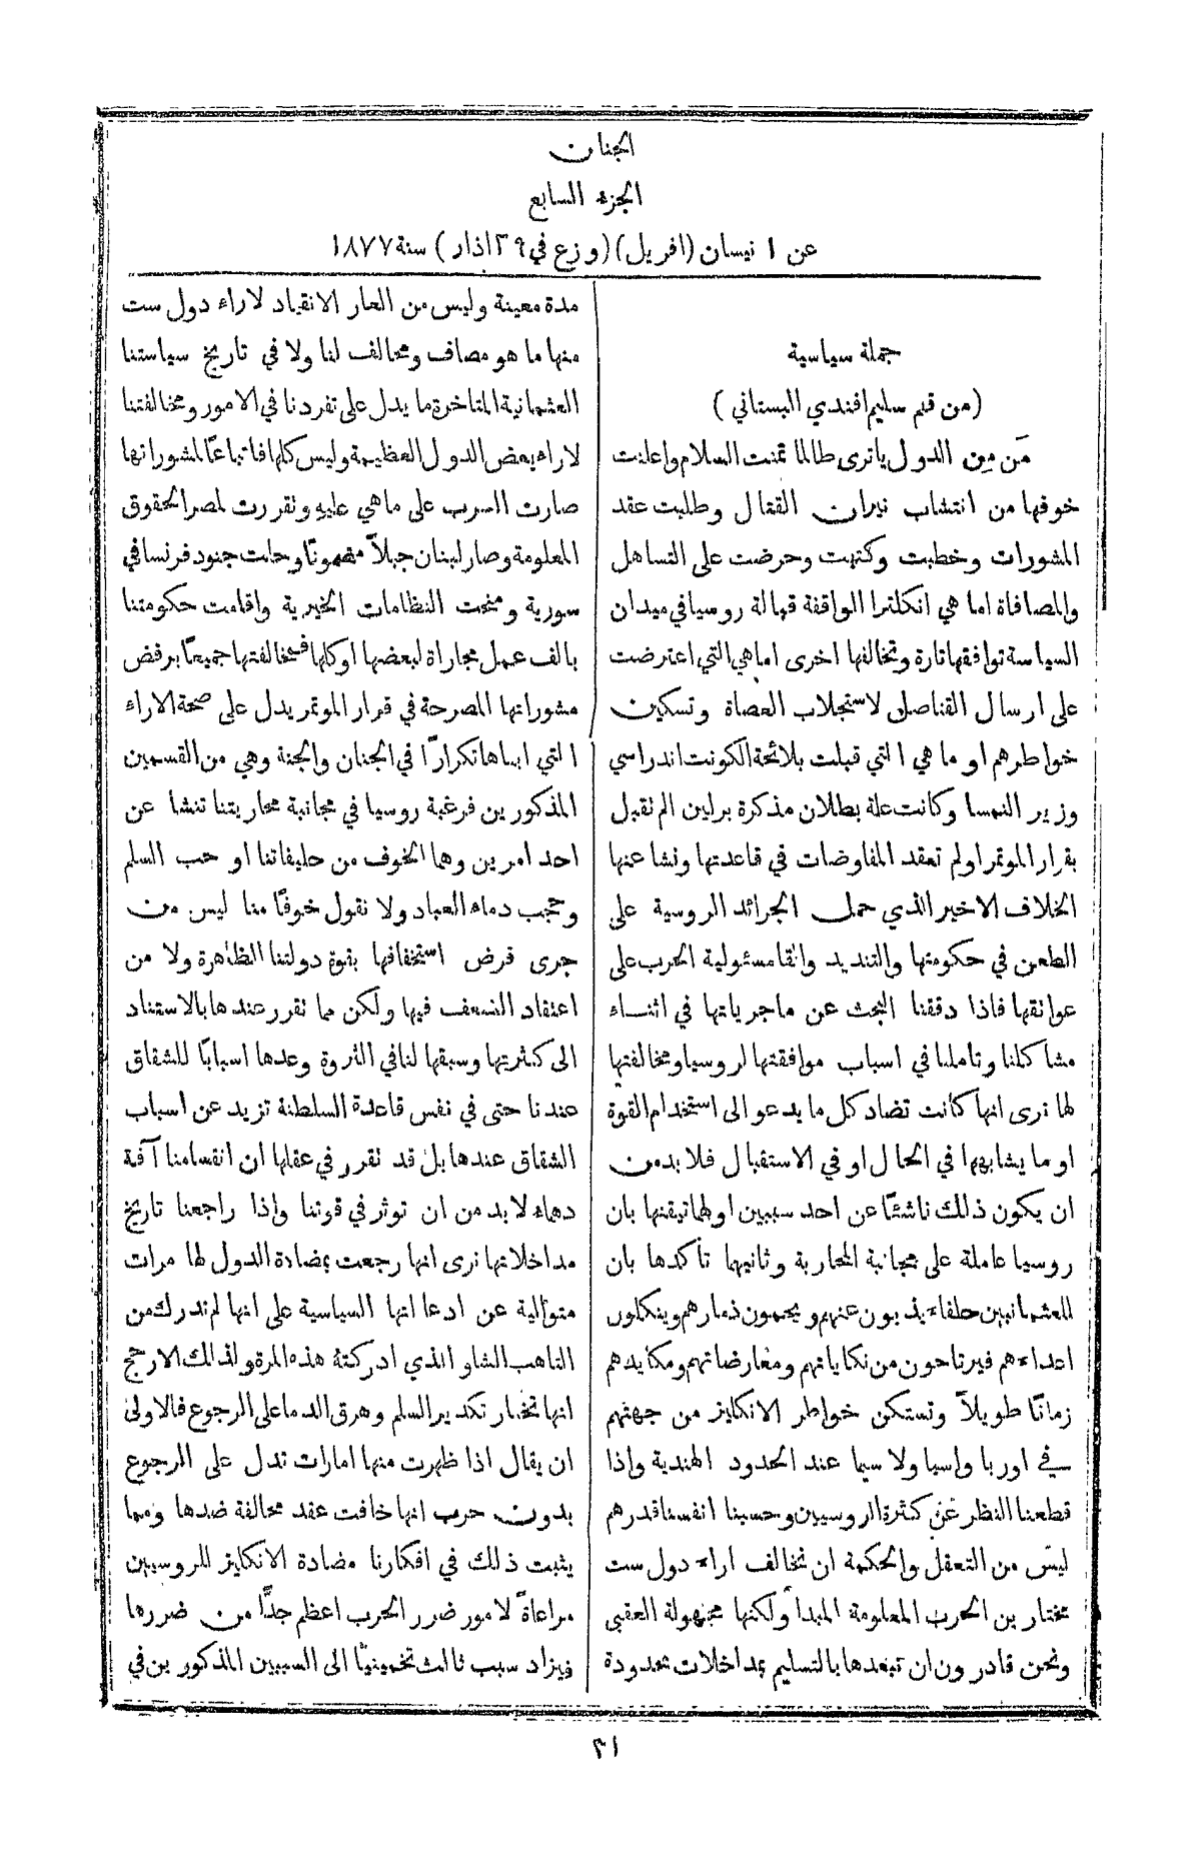 الجنان
الجزء السابع
عن ١ نيسان (افريل) (وزع في ٢٩ اذار) سنة ١٨٧٧
جملة سياسية
(من قلم سليم افندي البستاني)
مَن مِن الدول يا ترى طالما تمنت السلام واعلنت
خوفها من انتشاب نيران القتال وطلبت عقد
المشورات وخطبت وكتبت وحرضت على التساهل
والمصافاة اما هي انكلترا الواقفة قبالة روسيا في ميدان
السياسة توافقها تارة وتخالفها اخرى اما هي التي اعترضت
على ارسال القناصل لاستجلاب العصاة وتسكين
خواطرهم او ما هي التي قبلت بلائحة الكونت اندراسي
وزير النمسا وكانت علة بطلان مذكرة برلين الم تقبل
بقرار الموتمر اولم تعقد المفاوضات في قاعدتها ونشا عنها
الخلاف الاخير الذي حمل الجرائد الروسية على
الطعن في حكومتها والتنديد والقا مسئولية الحرب على
عواتقها فاذا دققنا البحث عن ماجرياتها في اثناء
مشاكلنا وتاملنا في اسباب موافقتها لروسيا ومخالفتها
لها نرى انها كانت تضاد كل ما يدعو الى استخدام القوة
او ما يشابهها في الحال او في الاستقبال فلا بد من
ان يكون ذلك ناشئًا عن احد سببين اولهما تيقنها بان
روسيا عاملة على مجانبة المحاربة وثانيهما تأكدها بان
للعثمانيين حلفاء يذبون عنهم ويحمون ذمارهم وينكلون
اعداءهم فيرتاحون من نكاياتهم ومعارضاتهم ومكايدهم
زمانًا طويلاً وتستكن خواطر الانكليز من جهتهم
في اوربا واسيا ولا سيما عند الحدود الهندية واذا
قطعنا النظر عن كثرة الروسيين وحسبنا انفسنا قدرهم
ليس من التعقل والحكمة ان نخالف اراء دول ست
مختارين الحرب المعلومة المبدأ ولكنها مجهولة العقبى
ونحن قادرون ان نبعدها بالتسليم بمداخلات محدودة
مدة معينة وليس من العار الانقياد لاراء دول ست
منها ما هو مصاف ومحالف لنا ولا في تاريخ سياستنا
العثمانية المتاخرة ما يدل على تفردنا في الامور ومخالفتنا
لاراء بعض الدول العظيمة وليس كلها فاتباعًا لمشوراتها
صارت السرب على ما هي عليه وتقررت لمصر الحقوق
المعلومة وصار لبنان جبلاً مضمونًا وحلت جنود فرنسا في
سورية ومنحت النظامات الخيرية واقامت حكومتنا
بالف عمل مجاراة لبعضها او كلها فمخالفتها جميعًا برفض
مشوراتها المصرحة في قرار الموتمر يدل على صحة الاراء
التي ابناها تكرارًا في الجنان والجنة وهي من القسمين
المذكورين فرغبة روسيا في مجانبة محاربتنا تنشا عن
احد امرين وهما الخوف من حليفاتنا او حب السلم
وحجب دماء العباد ولا نقول خوفًا منا ليس من
جرى فرض استخفافها بقوة دولتنا الظاهرة ولا من
اعتقاد الضعف فيها ولكن مما تقرر عندها بالاستناد
الى كثرتها وسبقها لنا في الثروة وعدها اسبابًا للشقاق
عندنا حتى في نفس قاعدة السلطنة تزيد عن اسباب
الشقاق عندها بل قد تقرر في عقلها ان انقسامنا آفة
دهماء لا بد من ان توثر في قوتنا واذا راجعنا تاريخ
مداخلاتها نرى انها رجعت بمضادة الدول لها مرات
متوالية عن ادعااتها السياسية على انها لم تدرك من
التاهب الشاو الذي ادركتهُ هذه المرة ولذلك الارجح
انها تختار تكدير السلم وهرق الدما على الرجوع فالاولى
ان يقال اذا ظهرت منها امارات تدل على الرجوع
بدون حرب انها خافت عقد محالفة ضدها ومما
يثبت ذلك في افكارنا مضادة الانكليز للروسيين
مراعاةً لامور ضرر الحرب اعظم جدًّا من ضررها
فيزاد سبب ثالث تخمينيًا الى السببين المذكورين في
٢١